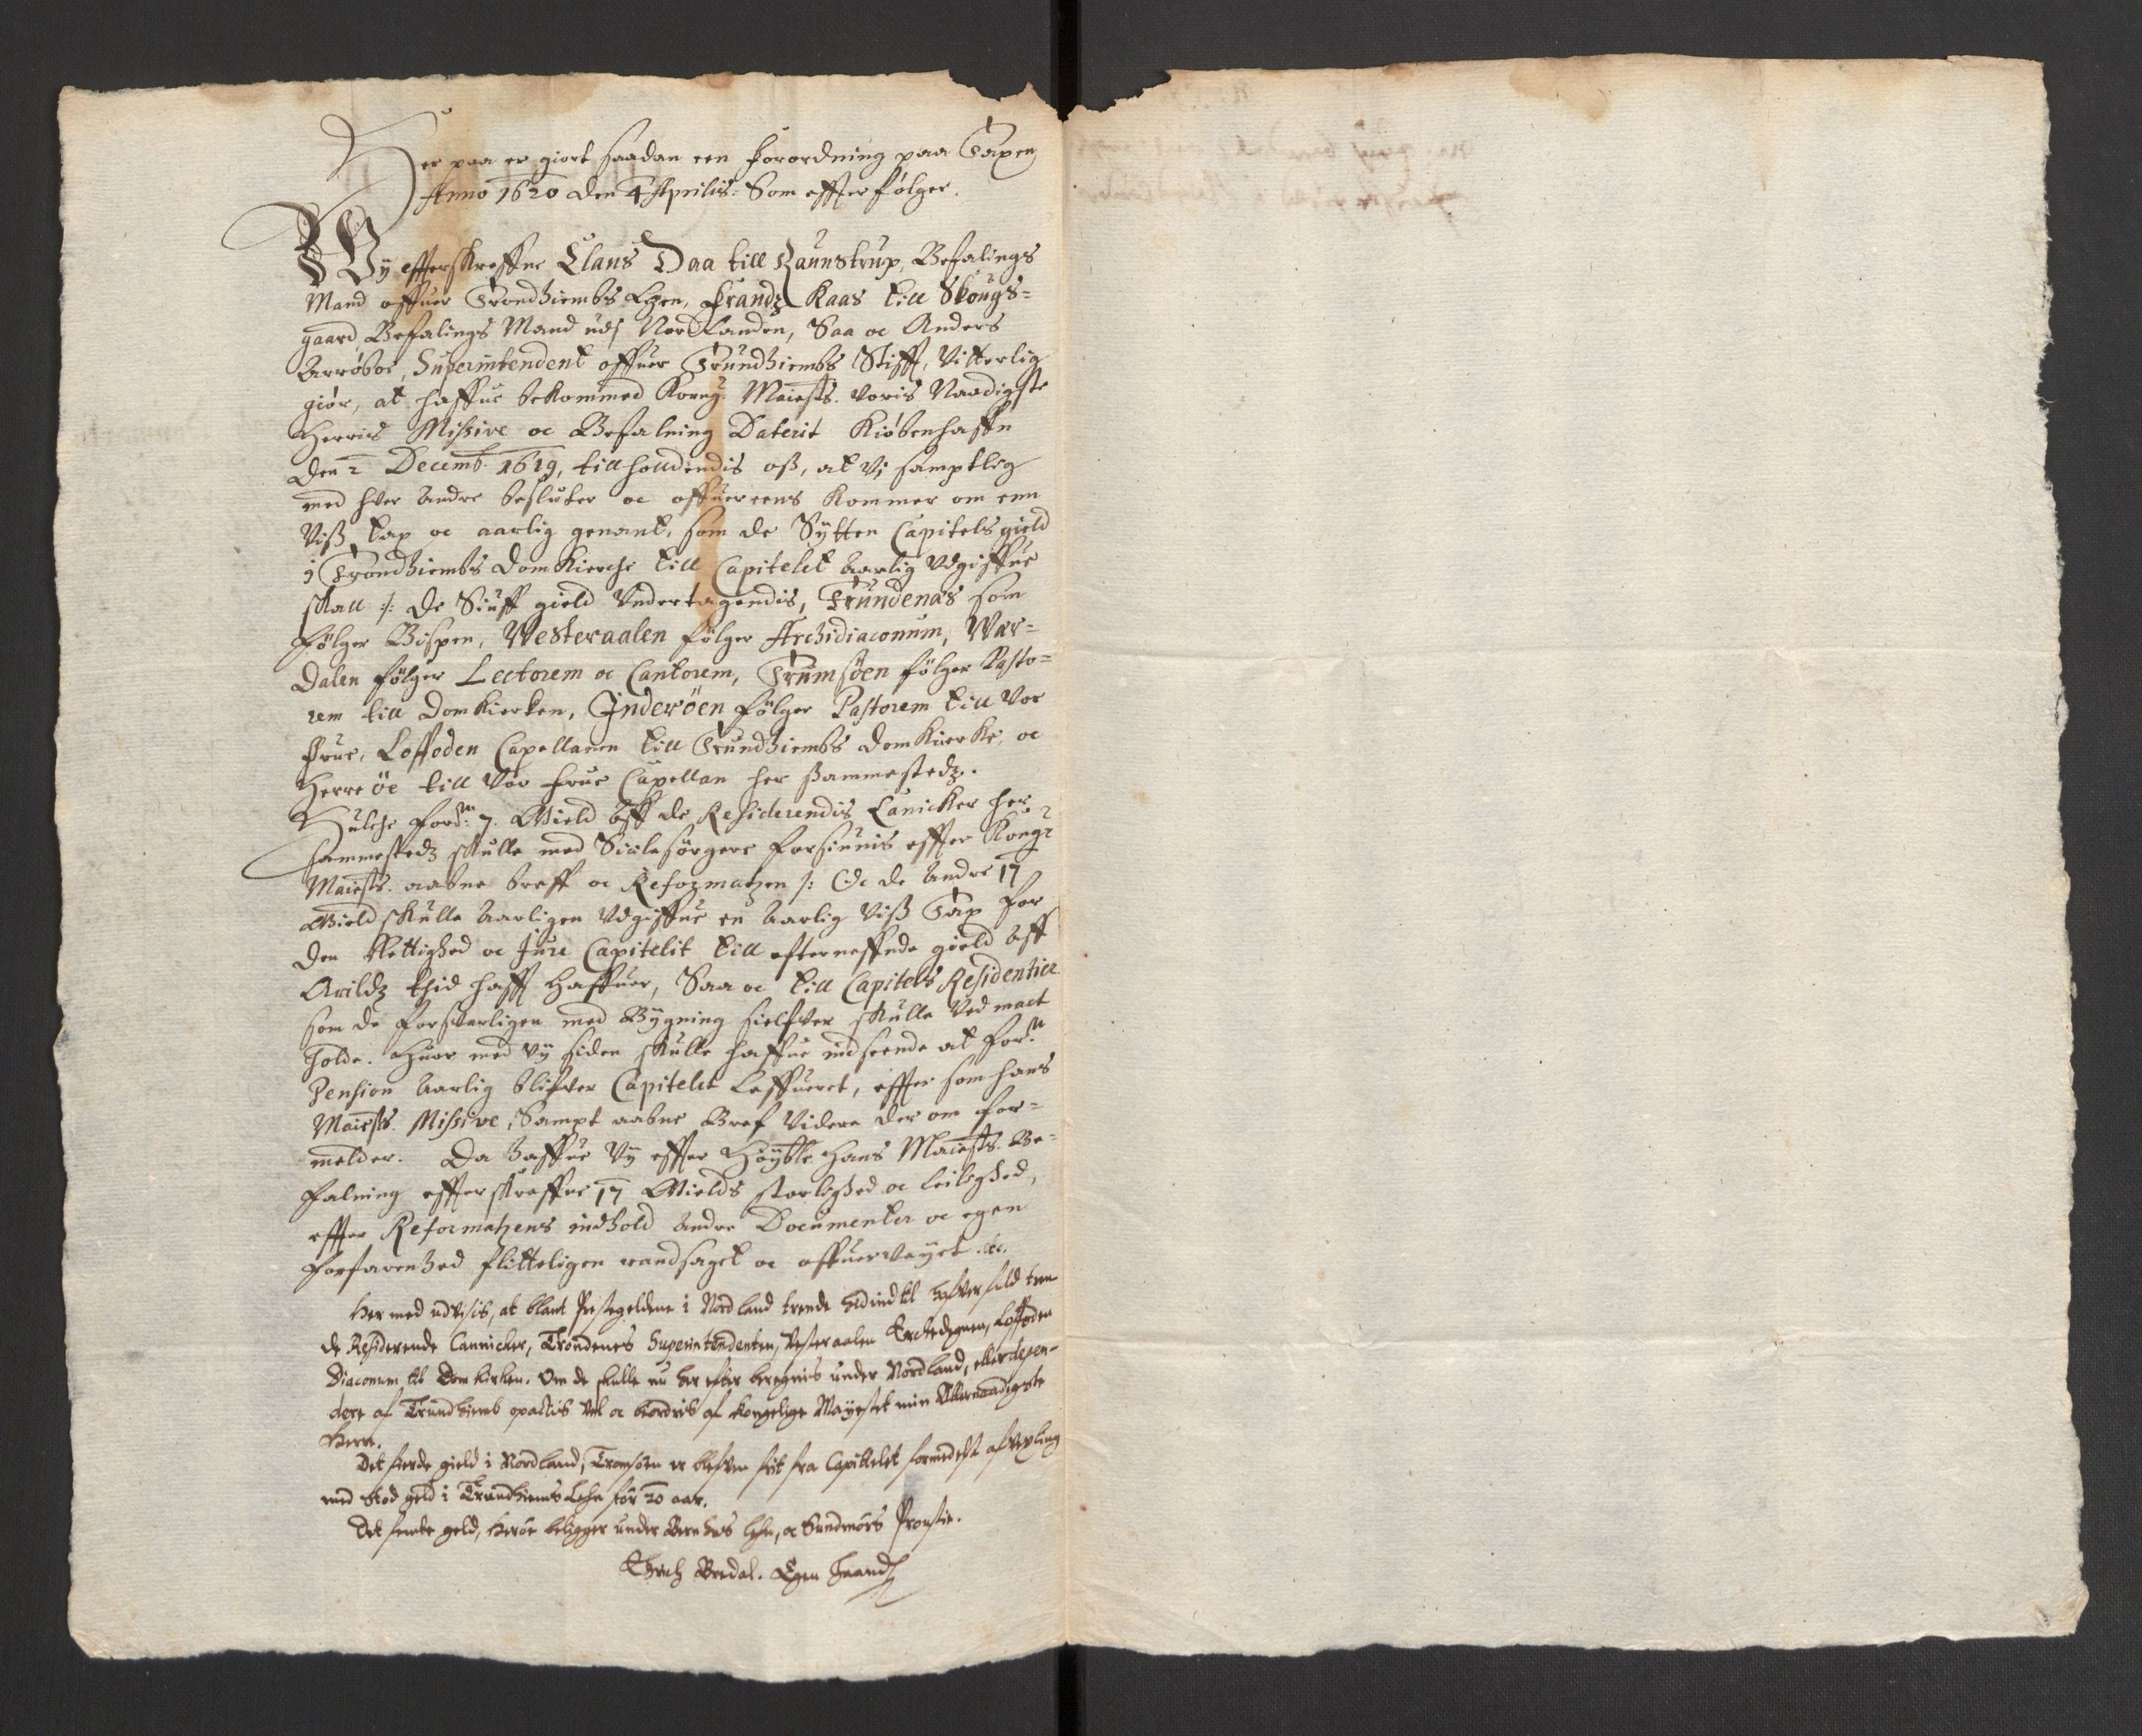 Her paa er giort saadan een forordning paa Taxen
Anno 1620 den 4 Aprilis: Som effter følger.
Wy effterskreffne Claus Daa till Raunstrup, Befalings
Mand offuer Trondhiembs Lhen, Frandz Kaas till Skougs-
gaard, Befalings Mand udj NordLanden, Saa oc Anders
Arrøboe, Superintendent offuer Trundhiembs Stifft, Vitterlig
giør, at haffue bekommed Kong: Maiests. voris Naadigste
Herris Missive oc Befalning Daterit Kiøbenhaffn
den 2 Decemb. 1619, tillholdendis oss, at vj samptlig
med hver andre besluter oc offuereens kommer om enn
Viss tax oc aarlig genant, som de Sytten Capitels gield
i Trondhiembs Domkierche till Capitelet aarlig udgiffue
skall /: De Siuff gield undertagendis, Trundenæs som
følger Bispen, Westeraalen følger Archidiaconum, Wær-
Dalen følger Lectorem oc Cantorem, Trumsøen følger Pasto-
rem till Domkierken, Inderöen følger Pastorem till Vor
Frue, Loffoden Capellanen till Trundhiembs domkierke, oc
Herreöe till Vor Frue Capellan her sammestedz.
Hulche ford: 7. Gield aff de Residerendis Canicker her
sammestedz skulle med Sielesørgere forsiunis effter Kong:
Maiests. aabne breff oc Reformatzen /: Oc de andre 17
Gield skulle aarligen udgiffue en aarlig Viss Tax for
den Rettighed oc Jure Capitelit till efterneffnde gield aff
Arildz thid hafft haffuer, Saa oc till Capitels Residentier
som de forsvarligen med Bygning sielfver skulle ved mact
holde. Huor med vy siden skulle haffue indseende at for:n
Pension aarlig blifver Capitelet leffueret, effter som hans
Maiests. Missive, Sampt aabne Bref videre der om for-
melder. Da haffue Vy effter Høybte Hans Maiests. Be-
falning effterskreffne 17 Gields storlighed oc leilighed,
effter Reformatzens indhold andre Documenter oc egen
forfarenhed flitteligen randsaget oc offuerveyet etc.
Her med udvisis, at blant Prestegeldene i Nordland trende hid indtil hafver fuld ten
de Residerende Cannicker, Trondenes Superintendenten, Vesteraalen Erchedegnen, Loffoden
Diaconum till Dom kirken. Om de skulle nu her efter beregnis under Nordland, eller depen-
dere af Trundhiemb opactis vel oc bordris af kongelige Mayestet min Allernaadigste
Herre.
Det fierde gield i Nordland, Tromsøen er blefven frit fra Capittelet formedelst afvexling
med Stod geld i Trundhiems Lehn før 20 aar.
Det femte geld, Herøe beligger under Bernhus lehn, oc Sundmørs Proustie.
Erich Bredal. Egen Haand